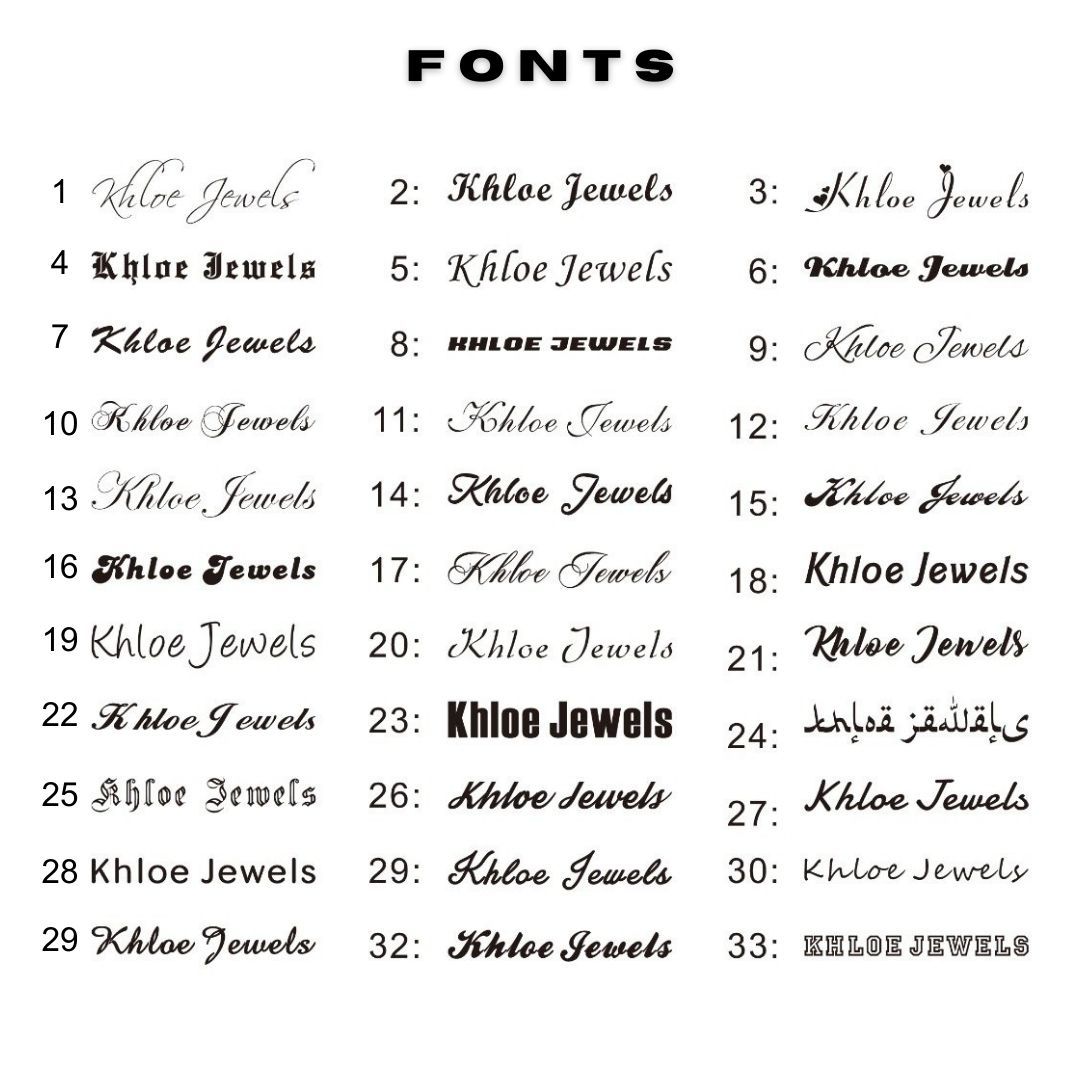 FONTS
1 Khloe Jewels 2: Khloe Jewels 3: Khloe Jewels
4 Khloe Jewels 5: Khloe Jewels 6: Khloe Jewels
7 Khloe Jewels 8: KHLOE JEWELS 9: Khloe Jewels
10 Khloe Jewels 11: Khloe Jewels 12: Khloe Jewels
13 Khloe Jewels 14: Khloe Jewels 15: Khloe Jewels
16 Khloe Jewels 17: Khloe Jewels 18: Khloe Jewels
19 Khloe Jewels 20: Khloe Jewels 21: Khloe Jewels
22 Khloe Jewels 23: Khloe Jewels 24: Khloe Jewels
25 Khloe Jewels 26: Khloe Jewels 27: Khloe Jewels
28 Khloe Jewels 29: Khloe Jewels 30: Khloe Jewels
29 Khloe Jewels 32: Khloe Jewels 33: KHLOE JEWELS